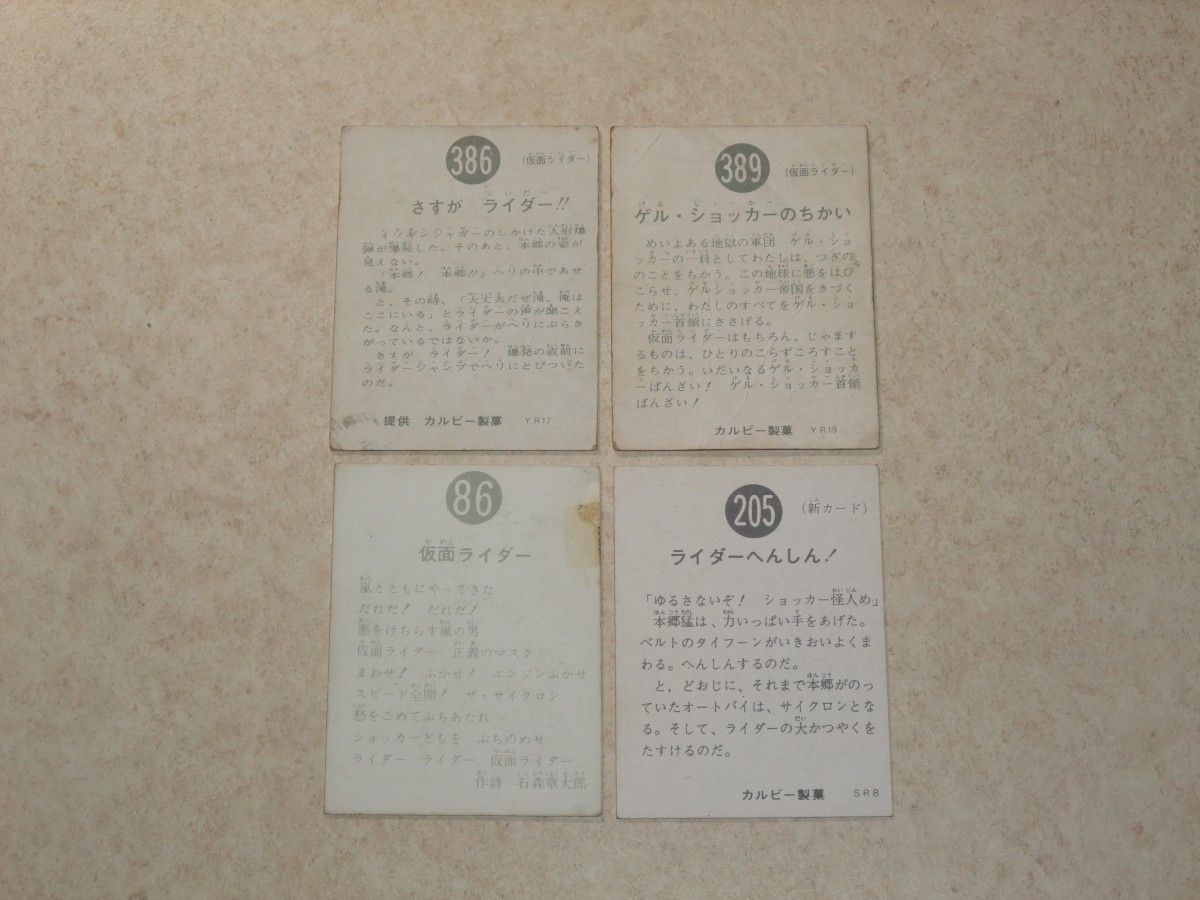 386
(仮面ライダー)
さすが ライダー!!
インキンジャガーのしかけた人形爆
弾が爆発した。そのあと、本郷の姿が
見えない。
「本郷! 本郷!!」ヘリの中であせ
る滝。
と、その時、「大丈夫だぜ滝、俺は
ここにいる」とライダーの声が聞こえ
た。なんと、ライダーがヘリにぶらさ
がっているではないか。
さすが ライダー! 爆発の直前に
ライダージャンプでヘリにとびついた
のだ。
提供 カルビー製菓 YR17
389
(仮面ライダー)
ゲル・ショッカーのちかい
めいよある地獄の軍団 ゲル・ショ
ッカーの一員としてわたしは、つぎの
のことをちかう。この地球に悪をはび
こらせ、ゲルショッカー帝国をきづく
ために、わたしのすべてをゲル・ショ
ッカー首領にささげる。
仮面ライダーはもちろん、じゃます
るものは、ひとりのこらずころすこと
をちかう。いだいなるゲル・ショッカ
ーばんざい! ゲル・ショッカー首領
ばんざい!
カルビー製菓 YR19
86
仮面ライダー
嵐とともにやってきた
だれだ! だれだ!
悪をけちらす嵐の男
仮面ライダー 正義のマスク
まわせ! ふかせ! エンジンふかせ
スピード全開! ザ・サイクロン
怒をこめてぶちあたれ
ショッカーどもを ぶちのめせ
ライダー ライダー 仮面ライダー
作詩 石森章太郎
205
(新カード)
ライダーへんしん!
「ゆるさないぞ! ショッカー怪人め」
本郷猛は、力いっぱい手をあげた。
ベルトのタイフーンがいきおいよくま
わる。へんしんするのだ。
と、どおじに、それまで本郷がのっ
ていたオートバイは、サイクロンとな
る。そして、ライダーの大かつやくを
たすけるのだ。
カルビー製菓 SR8